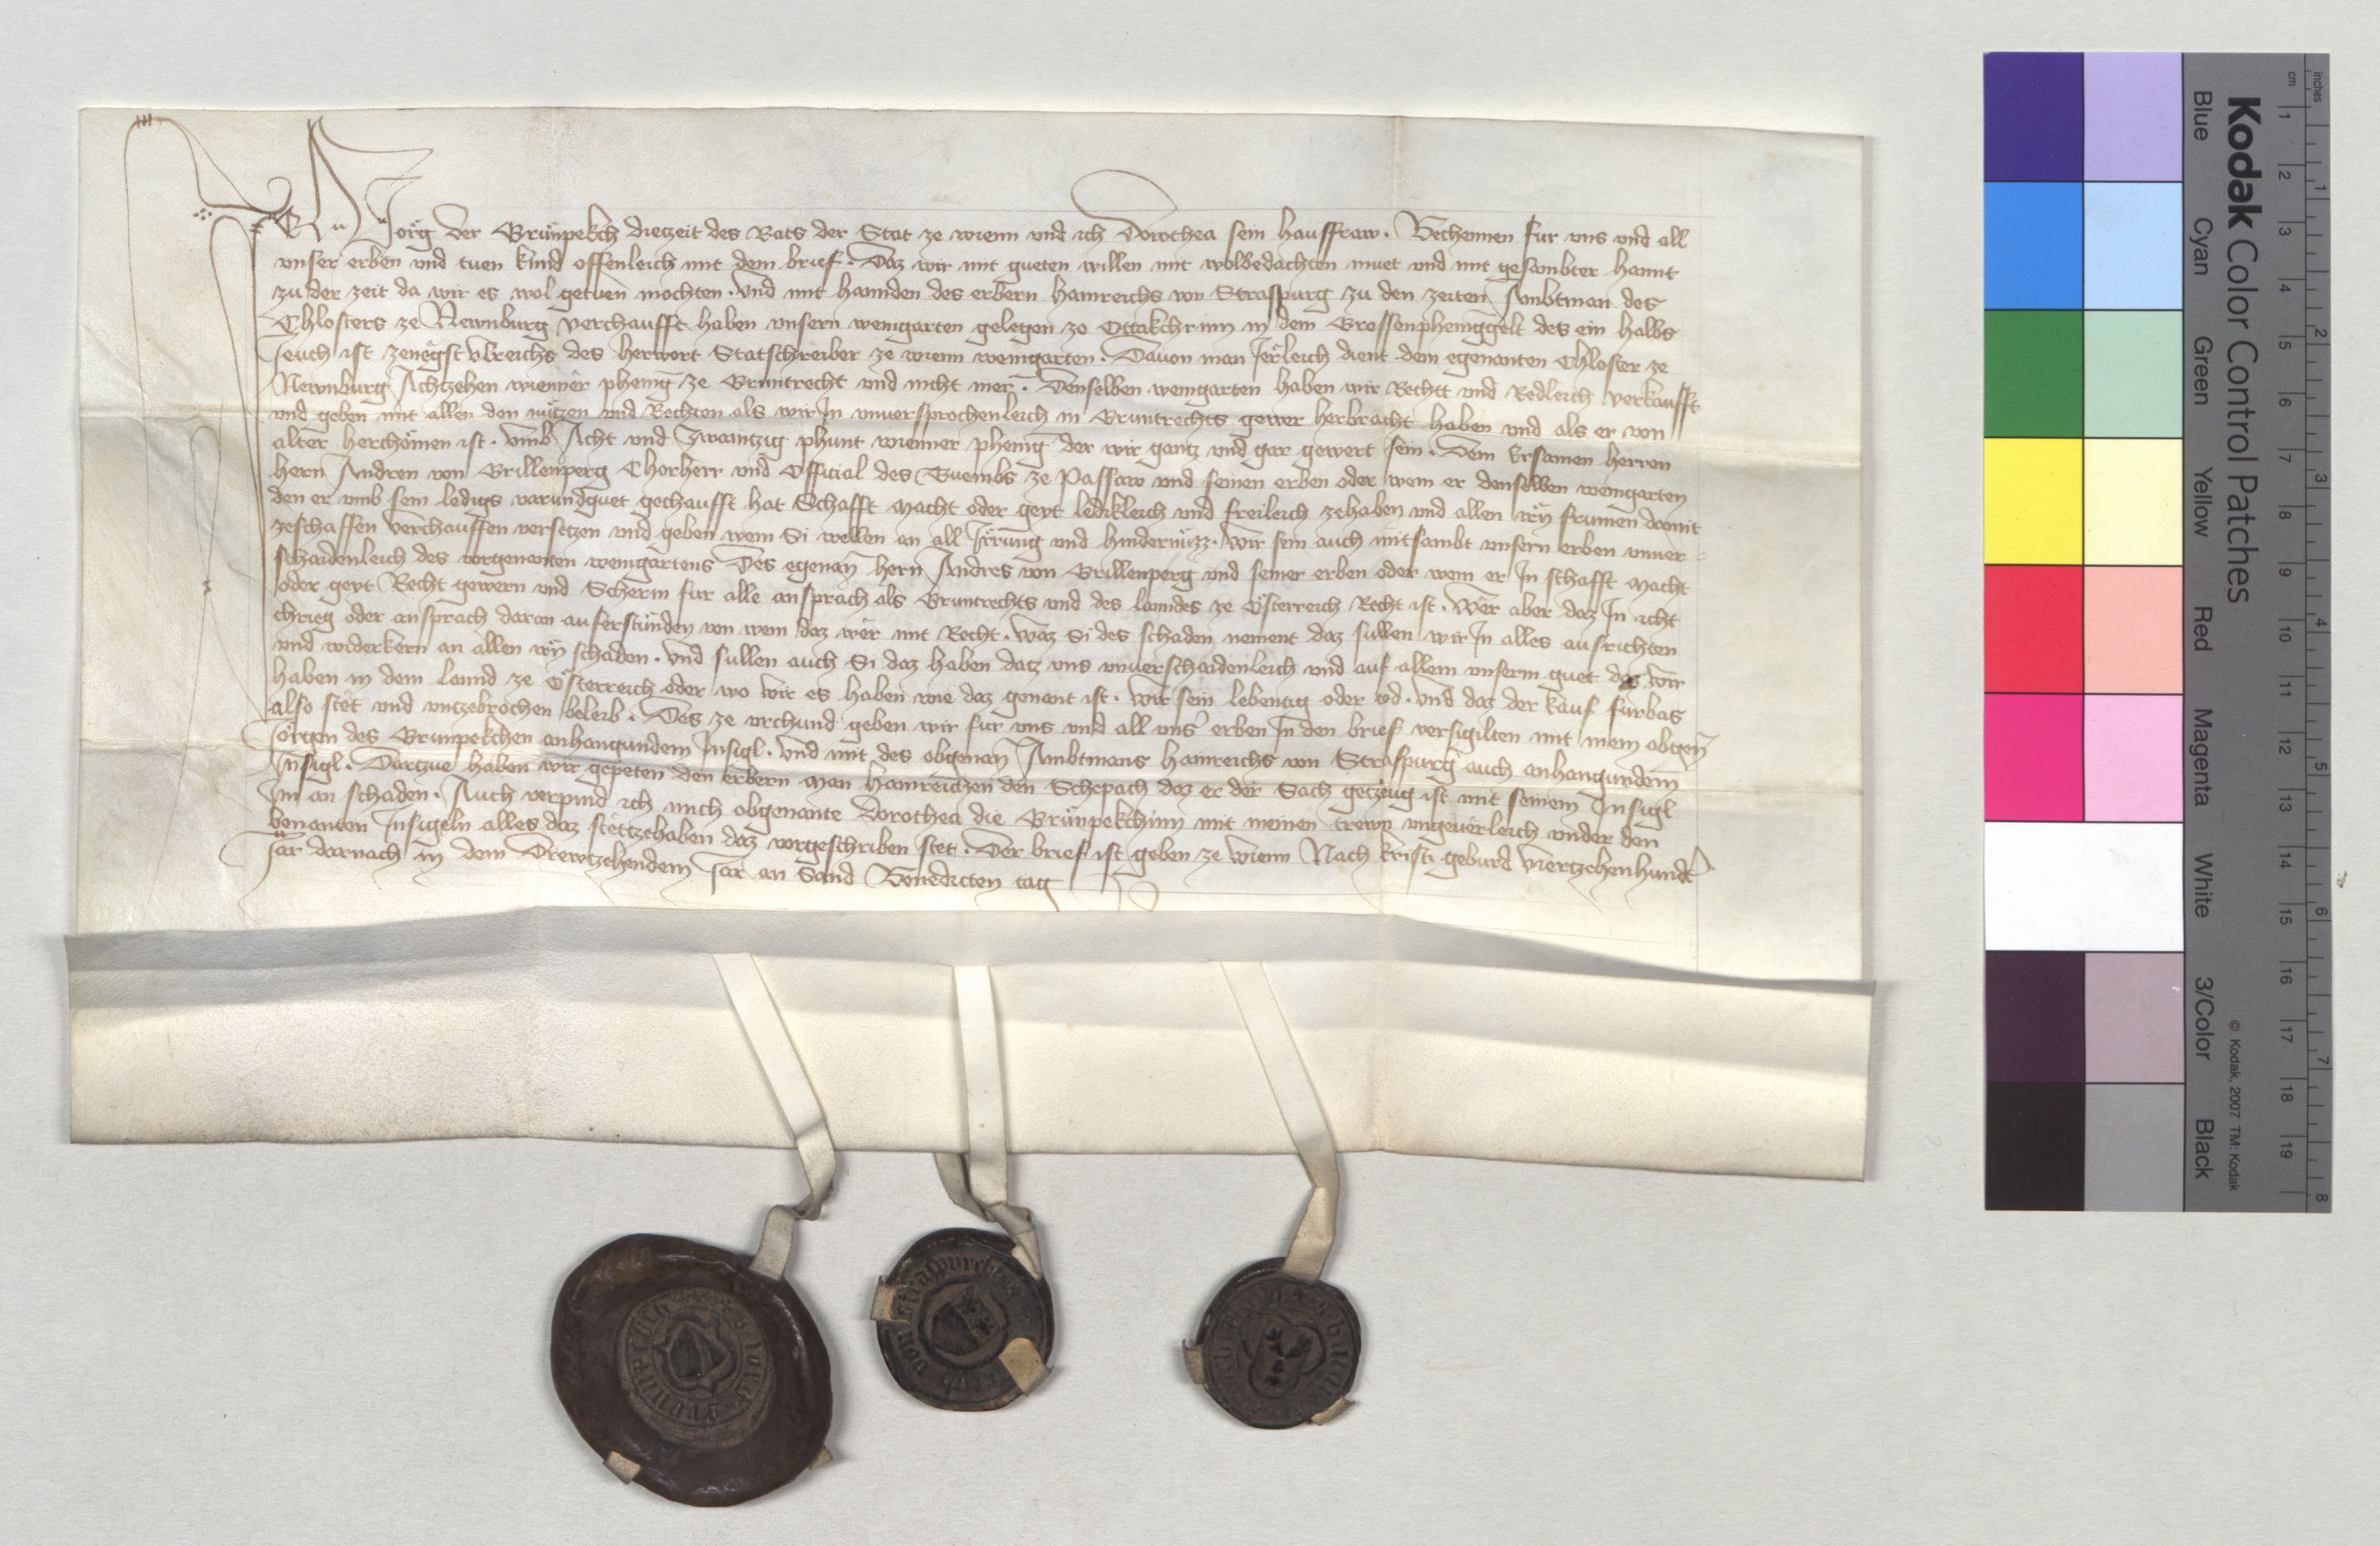 Ich Jorg der Grünpekch diezeit des Rats der Stat ze wienn vnd ich Dorothea sein hausfraw. Bechennen fur vns vnd all
vnser erben vnd tuen kund offenleich mit dem brief. Daz wir mit gueten willen mit wolbedachten muet vnd mit gesambter hannt
zu der zeit da wir es wol getuen mochten. vnd mit hannden des erbern hainreichs von Straspurg zu den zeiten Ambtman des
Chlosters ze Newnburg verchaufft haben vnsern weingarten gelegen ze Ottakchrinn in dem Grossenphenngelt des ein halbs
Jeuch ist zenegst vlreichs des herwort Statschreiber ze wienn weingarten. Dauon man Jerleich dient dem egenanten Chloster ze
Newnburg Achtzehen wienner phenig ze Gruntrecht vnd nicht mer. Denselben weingarten haben wir Rechtt vnd Redleich verkaufft
vnd geben mit allen den nutzen vnd Rechten als wir In vnuersprochenleich in Gruntrechts gewer herbracht haben vnd als er von
alter herchömen ist. vmb Acht vnd Zwaintzig phunt wienner phenig der wir gantz vnd gar gewert sein. Dem Ersamen herren
hern Andren von Grillenperg Chorherr vnd Official des Tuembs ze Passaw vnd seinen erben oder wem er denselben weingarten
den er vmb sein ledigs varundguet gechaufft hat Schafft macht oder geyt ledikleich vnd freileich zehaben vnd allen irn frumen damit
zeschaffen verchauffen versetzen vnd geben wem Si wellen an all Jrrung vnd hindernüzz. wir sein auch mitsambt vnsern erben vnuer-
schaidenleich des vorgenanten weingartens Des egenan hern Andres von Grillenperg vnd seiner erben oder wem er In schafft macht
oder geyt Recht gewern vnd Scherm fur alle ansprach als Gruntrechts vnd des lanndes ze Österreich Recht ist. Wer aber daz In icht
chrieg oder ansprach daran auferstünden von wem daz wer mit Recht. waz Si des schaden nement daz sullen wir In alles ausrichten
vnd widerkern an allen irn schaden. vnd sullen auch Si daz haben datz vns vnuerschaidenleich vnd auf allem vnserm guet daz wir
haben in dem lannd ze Österreich oder wo wir es haben wie daz genant ist. wir sein lebentig oder tod. vnd daz der kauf furbas
also stet vnd vnzebrochen beleib. Des ze vrchund geben wir fur vns vnd all vns erben In den brief versigilten mit mein obgen
Jörgen des Grünpekchen anhangundem Insigl. vnd mit des obgenan Ambtmans hainreichs von Straspurg auch anhangundem
Insigl. Darzue haben wir gepeten den erbern man hainreichen den Schepach daz er der Sach getzeug ist mit seinem Insigl
Im an schaden. Auch verpind ich mich obgenante Dorothea die Grünpekchinn mit meinen trewn vngeuerleich vnder den
benanten Insigeln alles daz stettzehaben daz vorgeschriben stet. Der brief ist geben ze wienn Nach kristi geburd viertzehenhundert
Jar darnach in dem Drewtzehendem Jar an Sand Benedicten tag
Kodak Color Control Patches
Blue Cyan Green Yellow Red Magenta White 3/Color Black
© Kodak, 2007 TM: Kodak
cm 1 2 3 4 5 6 7 8 9 10 11 12 13 14 15 16 17 18 19
inches 1 2 3 4 5 6 7 8